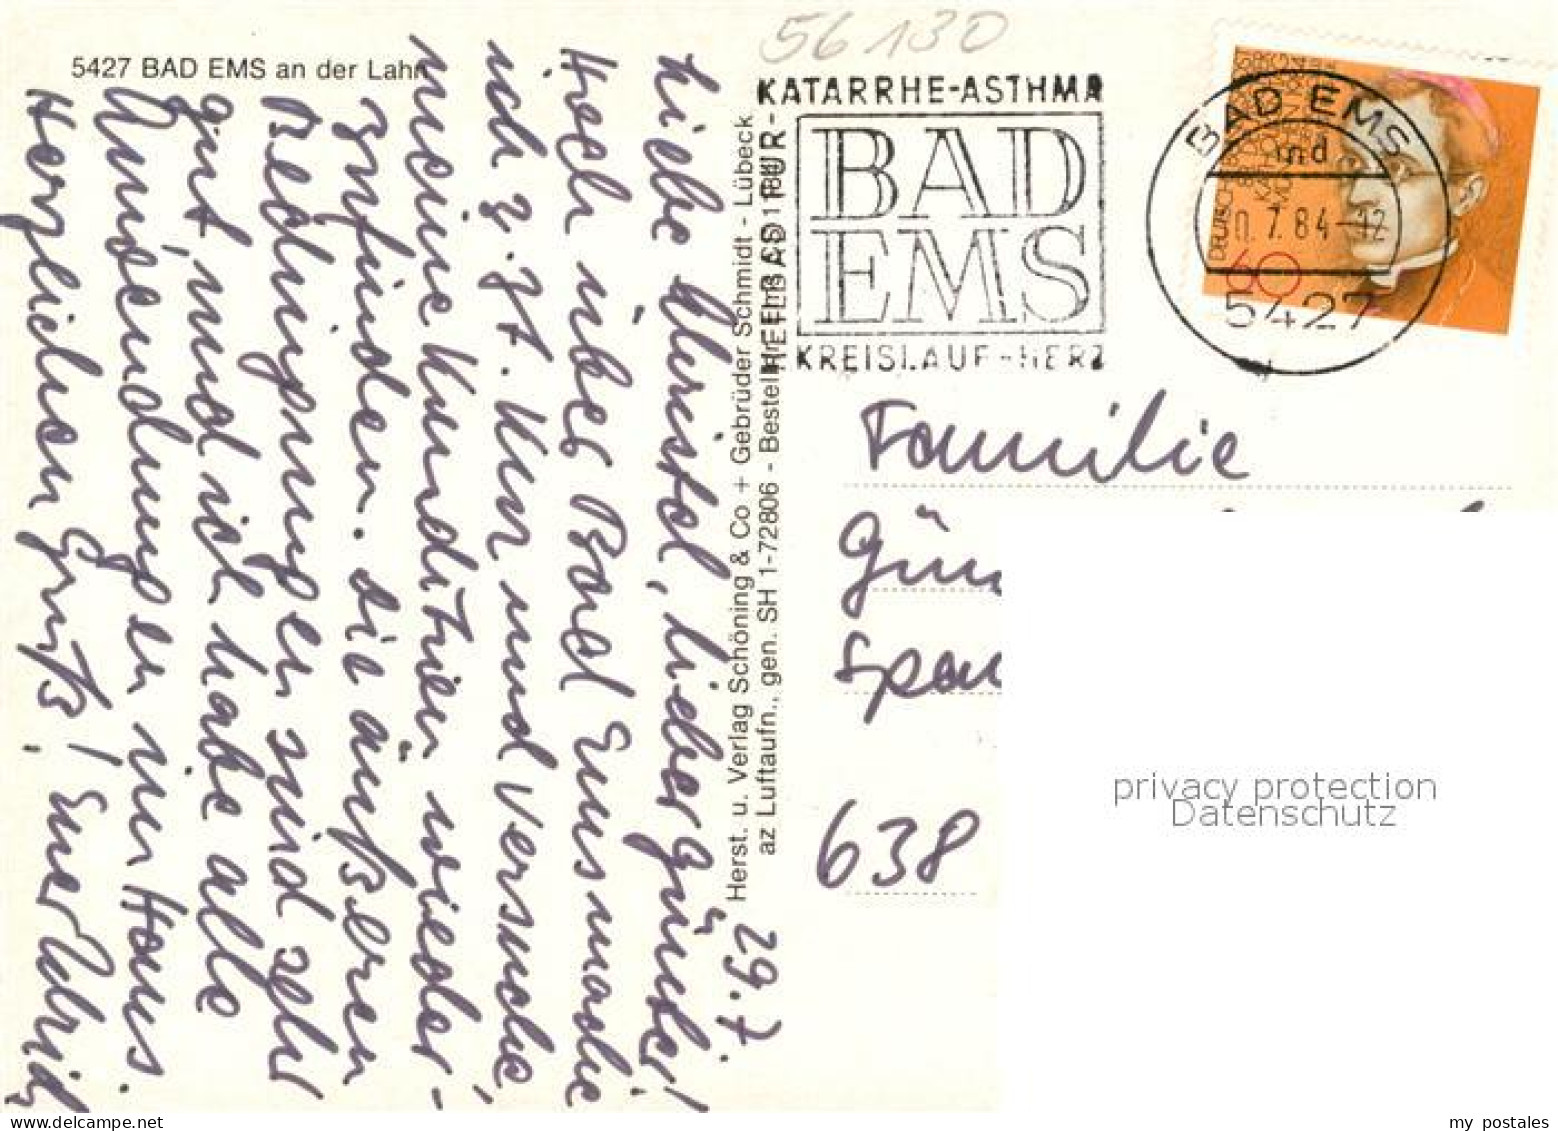 56130
5427 BAD EMS an der Lahn
KATARRHE-ASTHMA
BAD
EMS
KREISLAUF-HERZ
HEILBAD
KUR-
BAD EMS
md
0.7.84-12
5427
60
DEUTSCHE
Herst. u. Verlag Schöning & Co + Gebrüder Schmidt - Lübeck
az Luftaufn., gen. SH 1-72806 - Bestell-Nr.
29.7.
Liebe Christel, lieber Günter!
Hoch über Bad Ems mache
ich z. Zt. Kur und versuche,
meine Kondition wieder-
zufinden. Die äußeren
Bedingungen sind sehr
gut, und ich habe alle
Anwendungen im Haus.
Herzlichen Gruß! Euer
Familie
Gün
Span
638
privacy protection
Datenschutz
my postales